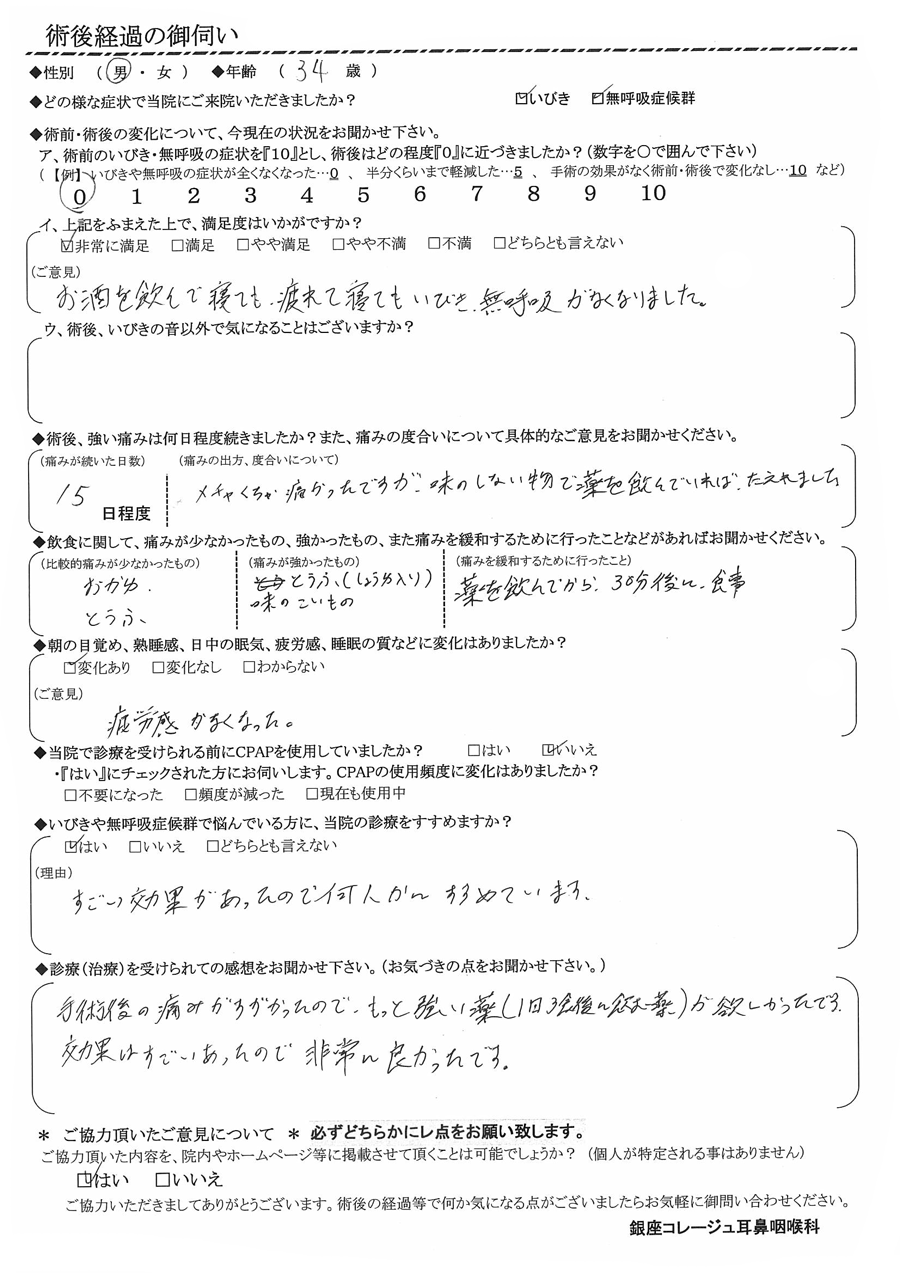 術後経過の御伺い
◆性別 （ 男 ・ 女 ） ◆年齢 （ 34 歳 ）
◆どの様な症状で当院にご来院いただきましたか？ ☑いびき ☑無呼吸症候群
◆術前・術後の変化について、今現在の状況をお聞かせ下さい。
ア、術前のいびき・無呼吸の症状を『10』とし、術後はどの程度『0』に近づきましたか？（数字を○で囲んで下さい）
（【例】いびきや無呼吸の症状が全くなくなった…0 、 半分くらいまで軽減した…5 、 手術の効果がなく術前・術後で変化なし…10 など）
0 1 2 3 4 5 6 7 8 9 10
イ、上記をふまえた上で、満足度はいかがですか？
☑非常に満足 □満足 □やや満足 □やや不満 □不満 □どちらとも言えない
（ご意見）
お酒を飲んで寝ても、疲れて寝てもいびき、無呼吸がなくなりました。
ウ、術後、いびきの音以外で気になることはございますか？
◆術後、強い痛みは何日程度続きましたか？また、痛みの度合いについて具体的なご意見をお聞かせください。
（痛みが続いた日数） （痛みの出方、度合いについて）
15 日程度 メチャくちゃ痛かったですが、味のしない物で薬を飲んでいれば、たえれました
◆飲食に関して、痛みが少なかったもの、強かったもの、また痛みを緩和するために行ったことなどがあればお聞かせください。
（比較的痛みが少なかったもの） （痛みが強かったもの） （痛みを緩和するために行ったこと）
おかゆ、 とうふ、（しょうゆ入り） 薬を飲んでから、30分後に、食事
とうふ、 味のこいもの
◆朝の目覚め、熟睡感、日中の眠気、疲労感、睡眠の質などに変化はありましたか？
☑変化あり □変化なし □わからない
（ご意見）
疲労感がなくなった。
◆当院で診療を受けられる前にCPAPを使用していましたか？ □はい ☑いいえ
・『はい』にチェックされた方にお伺いします。CPAPの使用頻度に変化はありましたか？
□不要になった □頻度が減った □現在も使用中
◆いびきや無呼吸症候群で悩んでいる方に、当院の診療をすすめますか？
☑はい □いいえ □どちらとも言えない
（理由）
すごい効果があったので何人かに すすめています、
◆診療（治療）を受けられての感想をお聞かせ下さい。（お気づきの点をお聞かせ下さい。）
手術後の痛みがすごかったので、もっと強い薬（1日3食後に飲む薬）が欲しかったです、
効果はすごいあったので 非常に良かったです。
＊ ご協力頂いたご意見について ＊ 必ずどちらかにレ点をお願い致します。
ご協力頂いた内容を、院内やホームページ等に掲載させて頂くことは可能でしょうか？ （個人が特定される事はありません）
☑はい □いいえ
ご協力いただきましてありがとうございます。術後の経過等で何か気になる点がございましたらお気軽に御問い合わせください。
銀座コレージュ耳鼻咽喉科